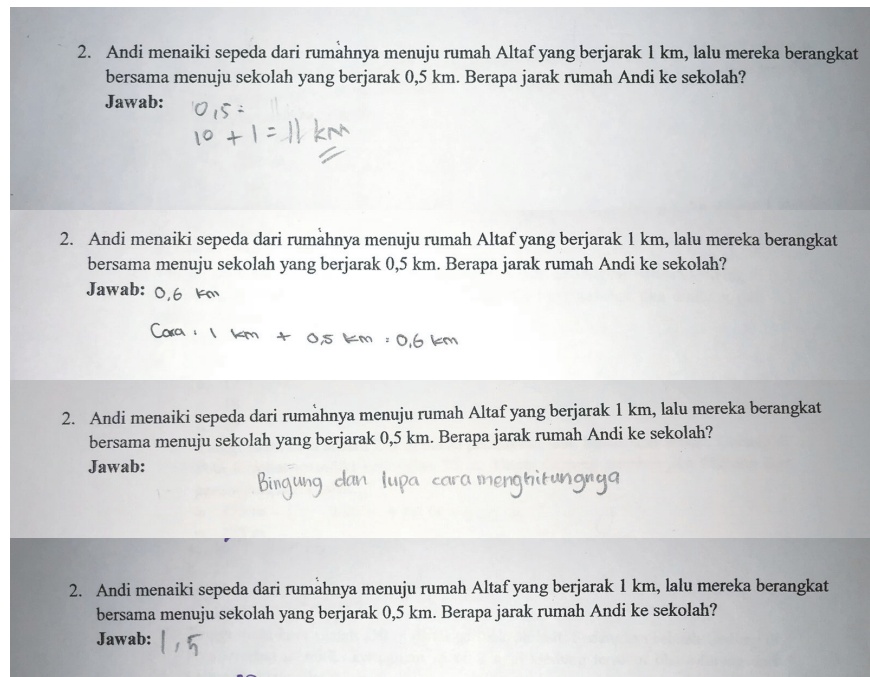 2. Andi menaiki sepeda dari rumahnya menuju rumah Altaf yang berjarak 1 km, lalu mereka berangkat
bersama menuju sekolah yang berjarak 0,5 km. Berapa jarak rumah Andi ke sekolah?
Jawab: 0,5 =
10 + 1 = 11 km
2. Andi menaiki sepeda dari rumahnya menuju rumah Altaf yang berjarak 1 km, lalu mereka berangkat
bersama menuju sekolah yang berjarak 0,5 km. Berapa jarak rumah Andi ke sekolah?
Jawab: 0,6 km
Cara : 1 km + 0,5 km = 0,6 km
2. Andi menaiki sepeda dari rumahnya menuju rumah Altaf yang berjarak 1 km, lalu mereka berangkat
bersama menuju sekolah yang berjarak 0,5 km. Berapa jarak rumah Andi ke sekolah?
Jawab:
Bingung dan lupa cara menghitungnya
2. Andi menaiki sepeda dari rumahnya menuju rumah Altaf yang berjarak 1 km, lalu mereka berangkat
bersama menuju sekolah yang berjarak 0,5 km. Berapa jarak rumah Andi ke sekolah?
Jawab: 1,5